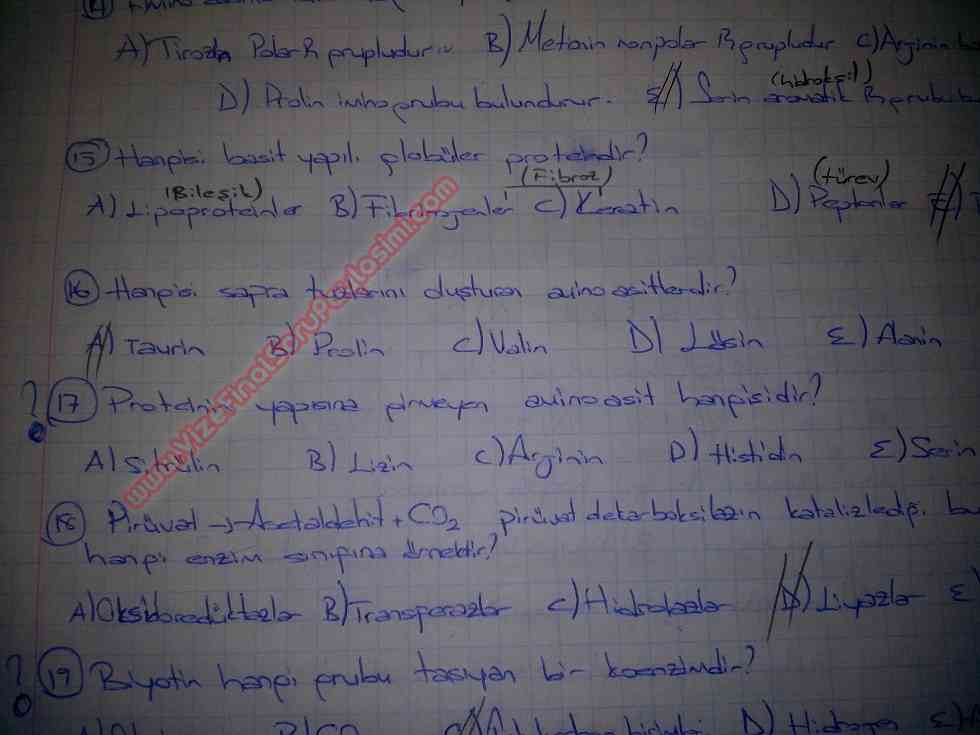 A) Tirozin Polar R grupludur. B) Metionin nonpolar R grupludur C) Arginin
(hidroksil)
D) Prolin imino grubu bulundurur. E) Serin aromatik R grubu
15 Hangisi basit yapılı globüler proteindir?
(Bileşik) (Fibröz) (türev)
A) Lipoproteinler B) Fibrinojenler C) Keratin D) Peptonlar
16 Hangisi safra tuzlarını oluşturan aminoasitlerdir?
A) Taurin B) Prolin C) Valin D) Lösin E) Alanin
? 17 Proteinin yapısına girmeyen aminoasit hangisidir?
A) Sitrülin B) Lizin C) Arginin D) Histidin E) Serin
18 Pirüvat → Asetaldehit + CO2 pirüvat dekarboksilazın katalizlediği bu
hangi enzim sınıfına örnektir?
A) Oksidoredüktazlar B) Transferazlar C) Hidrolazlar D) Liyazlar E)
? 19 Biyotin hangi grubu taşıyan bir koenzimdir?
D) Hidrojen E)
www.VizeFinalSoruPaylasimi.com